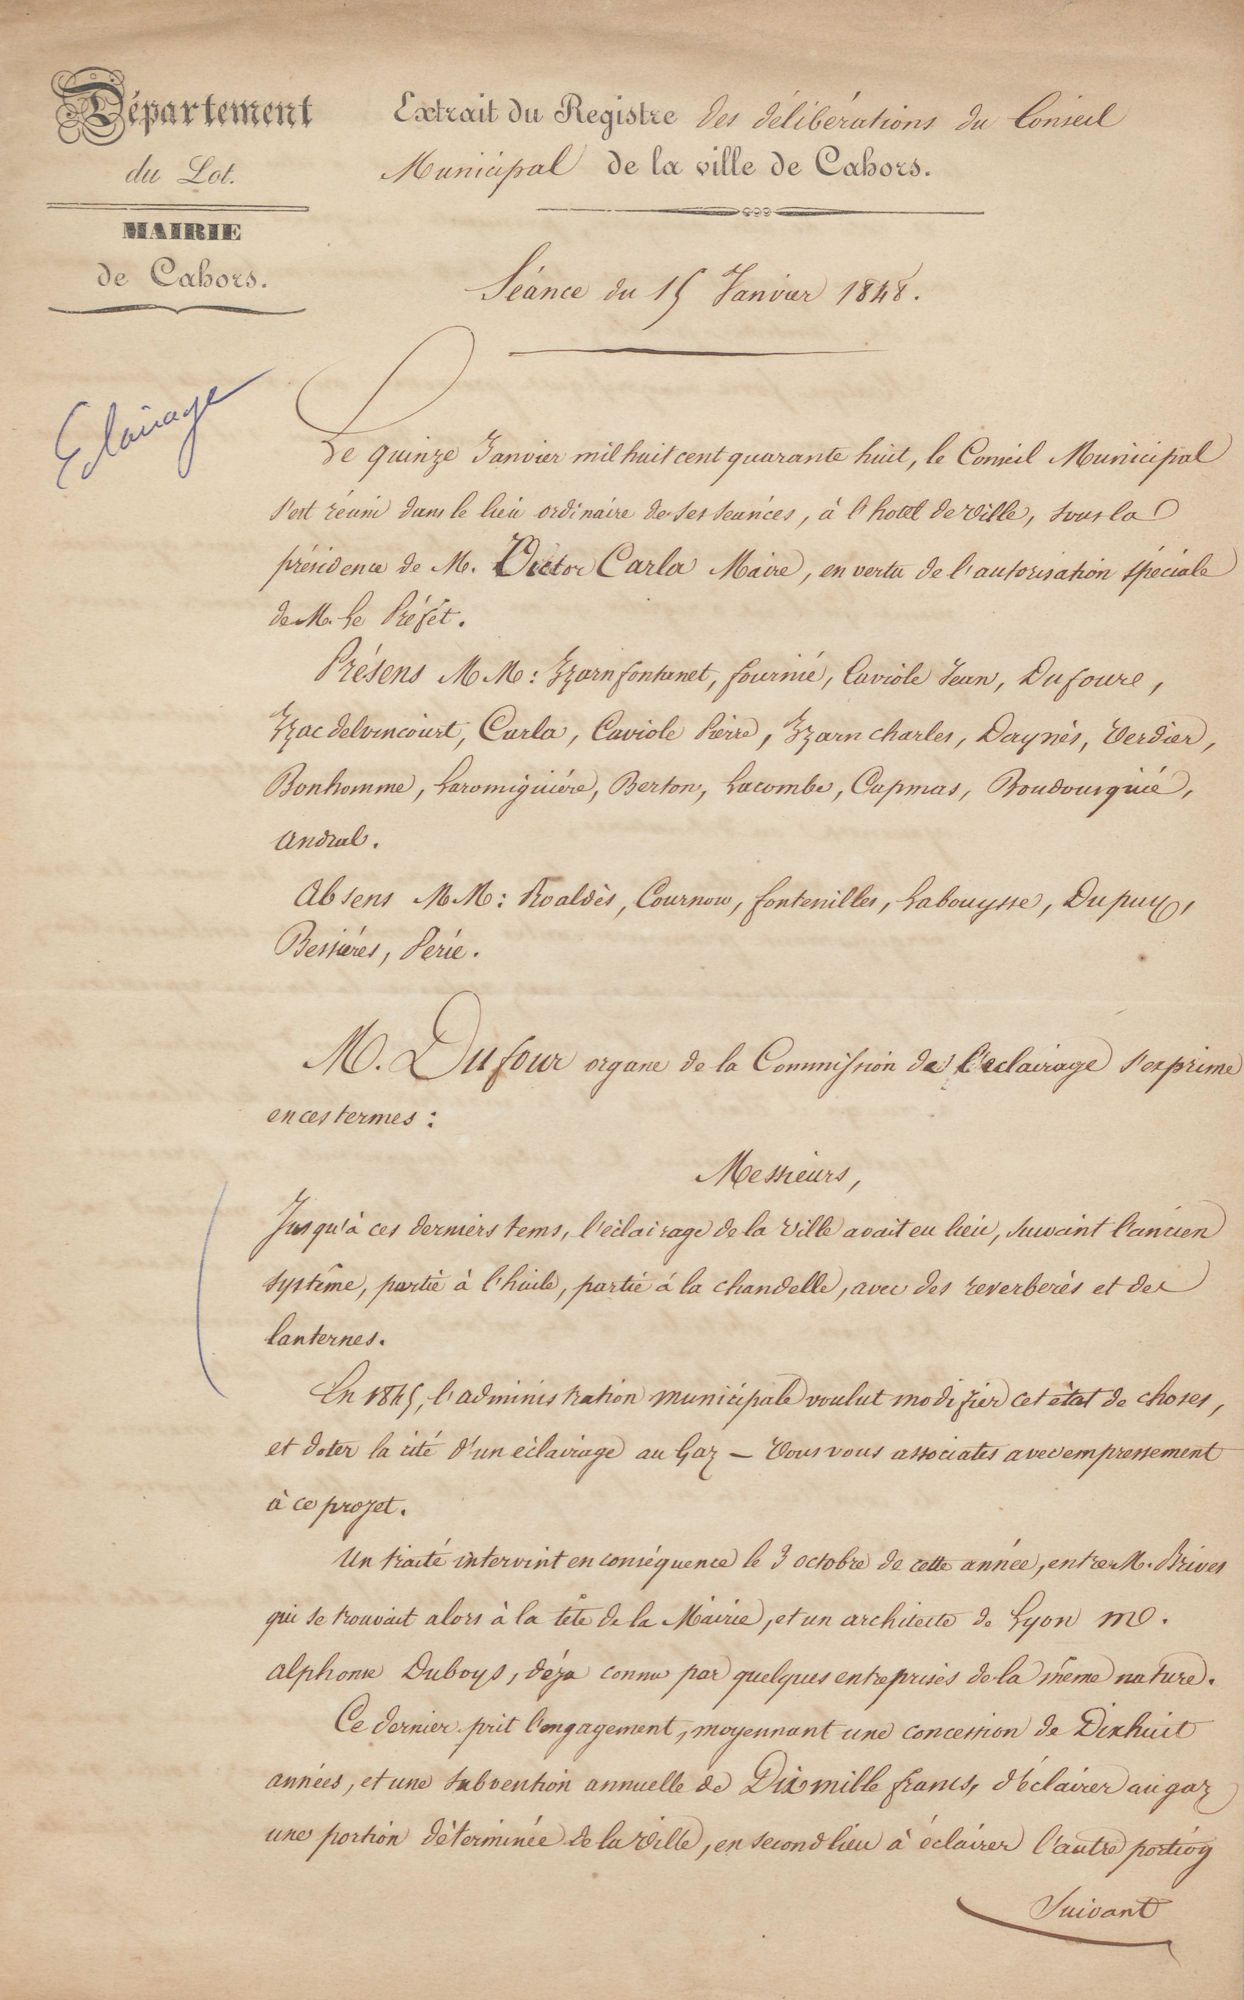 Département
du Lot.
MAIRIE
de Cahors.
Extrait du Registre des délibérations du Conseil
Municipal de la ville de Cahors.
Séance du 15 Janvier 1848.
Eclairage
Le quinze Janvier mil huit cent quarante huit, le Conseil Municipal
s'est réuni dans le lieu ordinaire de ses seances, à l'hotel de ville, sous la
présidence de M. Victor Carla Maire, en vertu de l'autorisation spéciale
de M. Le Préfet.
Présens MM: Izarn fontanet, fournié, Caviole Jean, Dufoure,
Izac delvincourt, Carla, Caviole Pierre, Izarn charles, Daynès, Verdier,
Bonhomme, Laromiguière, Berton, Lacombe, Capmas, Boudousquié,
Andral.
Absens MM: Roaldès, Cournou, fontenilles, Labouysse, Dupuy,
Bessières, Périé.
M. Dufour organe de la Commission de l'eclairage s'exprime
en ces termes:
Messieurs,
Jusqu'à ces derniers tems, l'éclairage de la Ville avait eu lieu, suivant l'ancien
système, partie à l'huile, partie à la chandelle, avec des reverberès et des
lanternes.
En 1845, l'administration municipale voulut modifier cet état de choses,
et doter la cité d'un éclairage au Gaz – Vous vous associates avec empressement
à ce projet.
Un traité intervint en conséquence le 3 octobre de cette année, entre M. Brives
qui se trouvait alors à la tête de la Mairie, et un architecte de Lyon M.
Alphonse Duboys, déja connu par quelques entreprises de la même nature.
Ce dernier prit l'engagement, moyennant une concession de Dixhuit
années, et une subvention annuelle de Dix mille francs, d'éclairer au gaz
une portion déterminée de la Ville, en second lieu à éclairer l'autre portion
Suivant